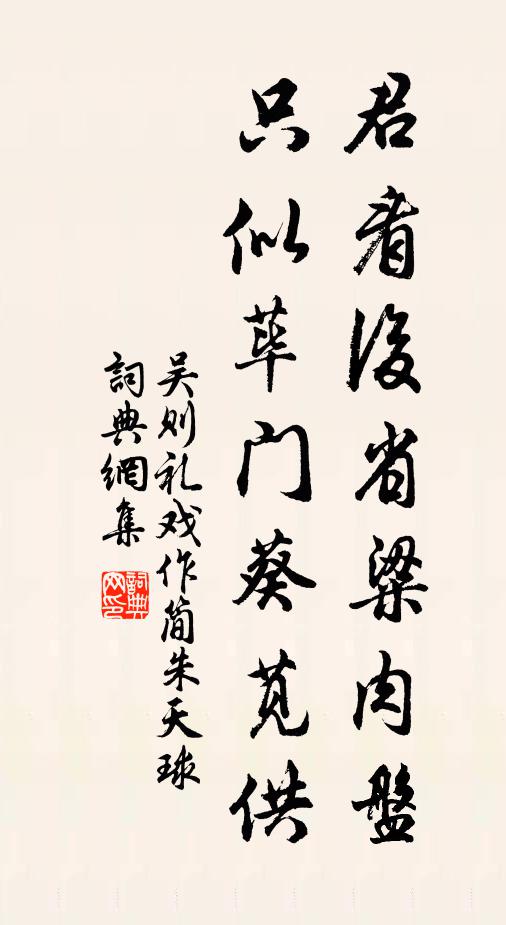 君看後省梁肉盤
只似荜门葵苋供
吴则礼戏作简朱天球
詞典網集
詞典網印